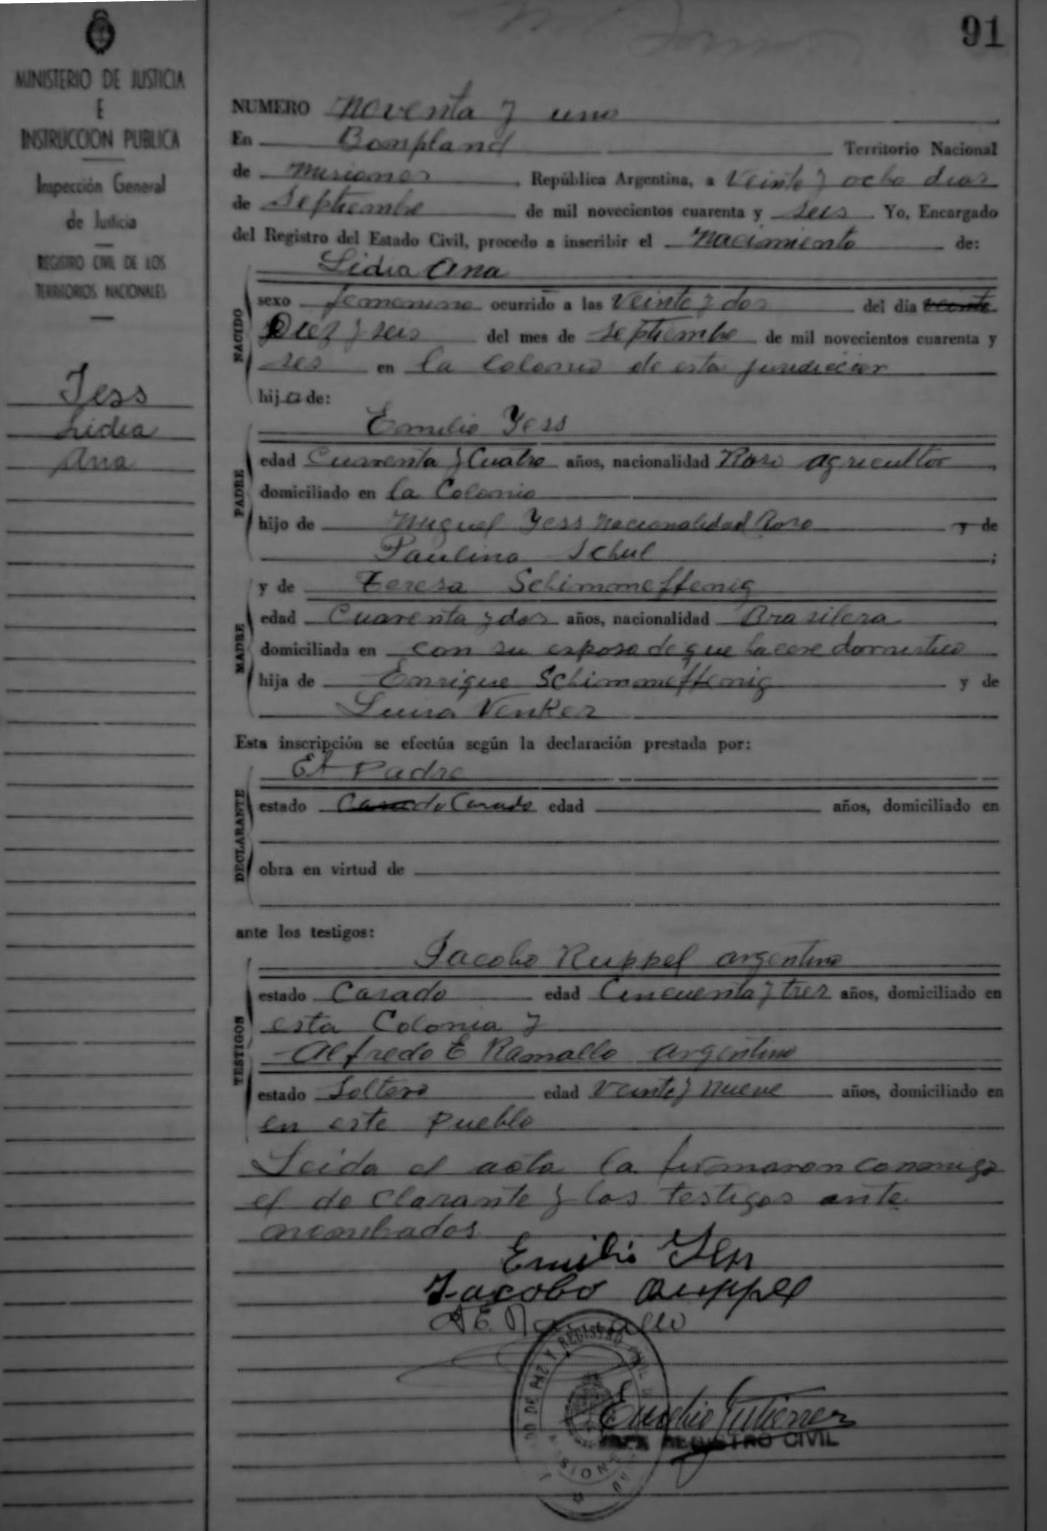 91
MINISTERIO DE JUSTICIA
E
INSTRUCCION PUBLICA
Inspección General
de Justicia
REGISTRO CIVIL DE LOS
TERRITORIOS NACIONALES
Jess
Lidia
Ana
NUMERO Noventa y uno
En Bompland Territorio Nacional
de Misiones, República Argentina, a Veinte y ocho dias
de Septiembre de mil novecientos cuarenta y seis Yo, Encargado
del Registro del Estado Civil, procedo a inscribir el Nacimiento de:
Lidia Ana
NACIDO
sexo femenino ocurrido a las Veinte y dos del día
Diez y seis del mes de septiembre de mil novecientos cuarenta y
seis en la Colonia de esta jurediccion
hija de:
Emilio Yess
PADRE
edad Cuarenta y Cuatro años, nacionalidad Ruso agricultor,
domiciliado en la Colonia
hijo de Miguel Yess nacionalidad Ruso y de
Paulina Schul;
y de Teresa Schimmeffenig
MADRE
edad Cuarenta y dos años, nacionalidad Brasilera,
domiciliada en con su esposo de que hacere domestico
hija de Enrique Schimmeffenig y de
Luisa Venker
Esta inscripción se efectúa según la declaración prestada por:
El Padre
DECLARANTE
estado Casado edad años, domiciliado en
obra en virtud de
ante los testigos:
Jacobo Ruppel argentino
TESTIGOS
estado Casado edad Cincuenta y tres años, domiciliado en
esta Colonia y
Alfredo E Ramallo argentino
estado Soltero edad Veinte y nueve años, domiciliado en
en este pueblo
Leida el acta la firmaron conmigo
el declarante y los testigos ante
nombrados
Emilio Jess
Jacobo Ruppel
AE Ramallo
DE PAZ Y REGISTRO CIVIL
MISIONES
Gutiérrez
JEFE REGISTRO CIVIL